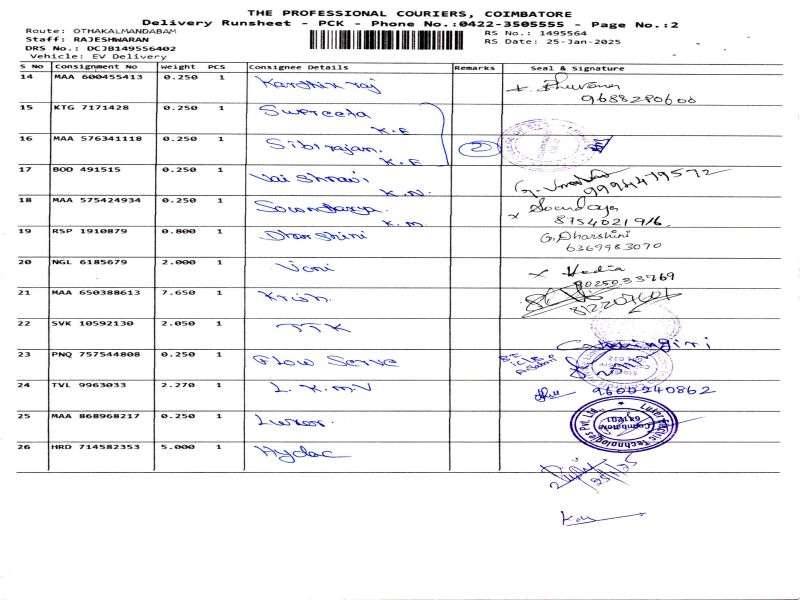 THE PROFESSIONAL COURIERS, COIMBATORE
Delivery Runsheet - PCK - Phone No.:0422-3505555 - Page No.:2
Route: OTHAKALMANDABAM
RS No.: 1495564
Staff: RAJESHWARAN
RS Date: 25-Jan-2025
DRS No.: DCJB149556402
Vehicle: EV Delivery
S No Consignment No Weight PCS Consignee Details Remarks Seal & Signature
14 MAA 600455413 0.250 1 Karthik raj
9688280600
15 KTG 7171428 0.250 1 Supreeta
K.E
16 MAA 576341118 0.250 1 Sibirajan. 2
K.E
17 BOD 491515 0.250 1 Vaishnavi
K.N. 9994479572
18 MAA 575424934 0.250 1 Soundarya
K.M.
19 RSP 1910879 0.800 1 Dharshini G.Dharshini
6369983070
20 NGL 6185679 2.000 1 Vani
9025033769
21 MAA 650388613 7.650 1
22 SVK 10592130 2.050 1 TTK
23 PNQ 757544808 0.250 1 Flow Serve
24 TVL 9963033 2.270 1 L.K.M.V 9600240862
25 MAA 868968217 0.250 1
26 HRD 714582353 5.000 1 Hydac